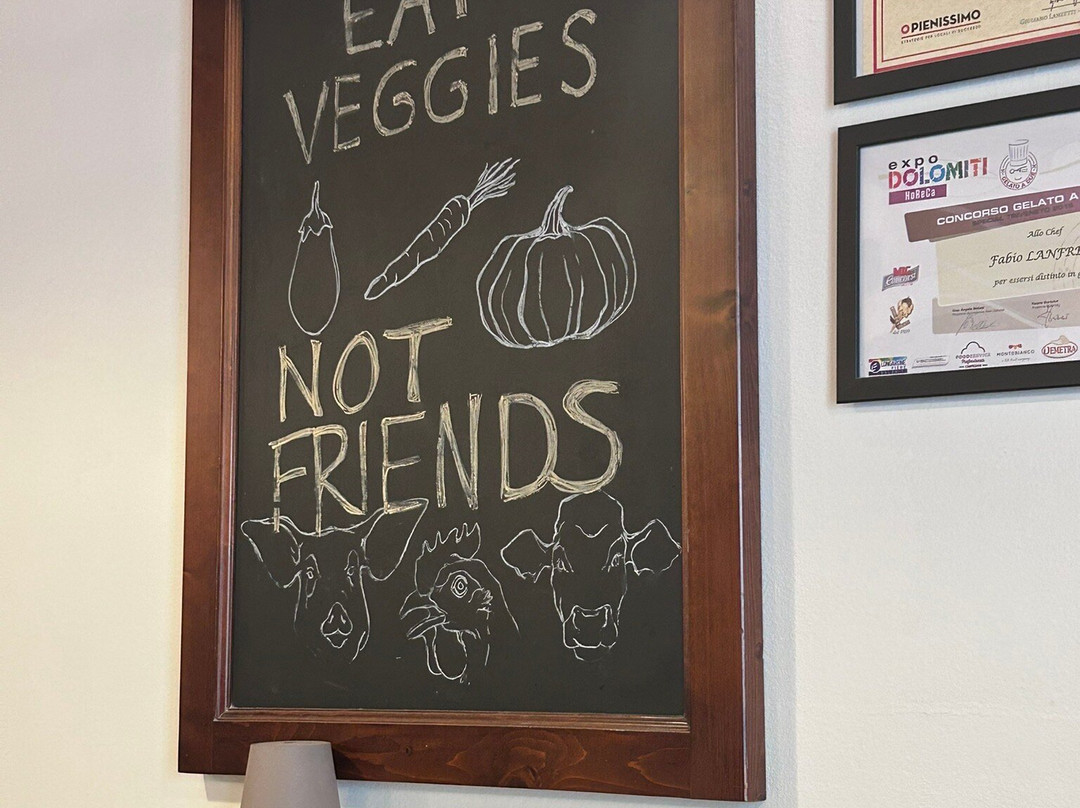 EAT
VEGGIES
NOT
FRIENDS
OPIENISSIMO
STRATEGIE PER LOCALI DI SUCCESSO
GIULIANO LANZETTI
expo
DOLOMITI
HoReCa
GELATO A DUE
CONCORSO GELATO A
Allo Chef
Fabio LANFRE
per essersi distinto in
FOODSERVICE
MONTEBIANCO
DEMETRA